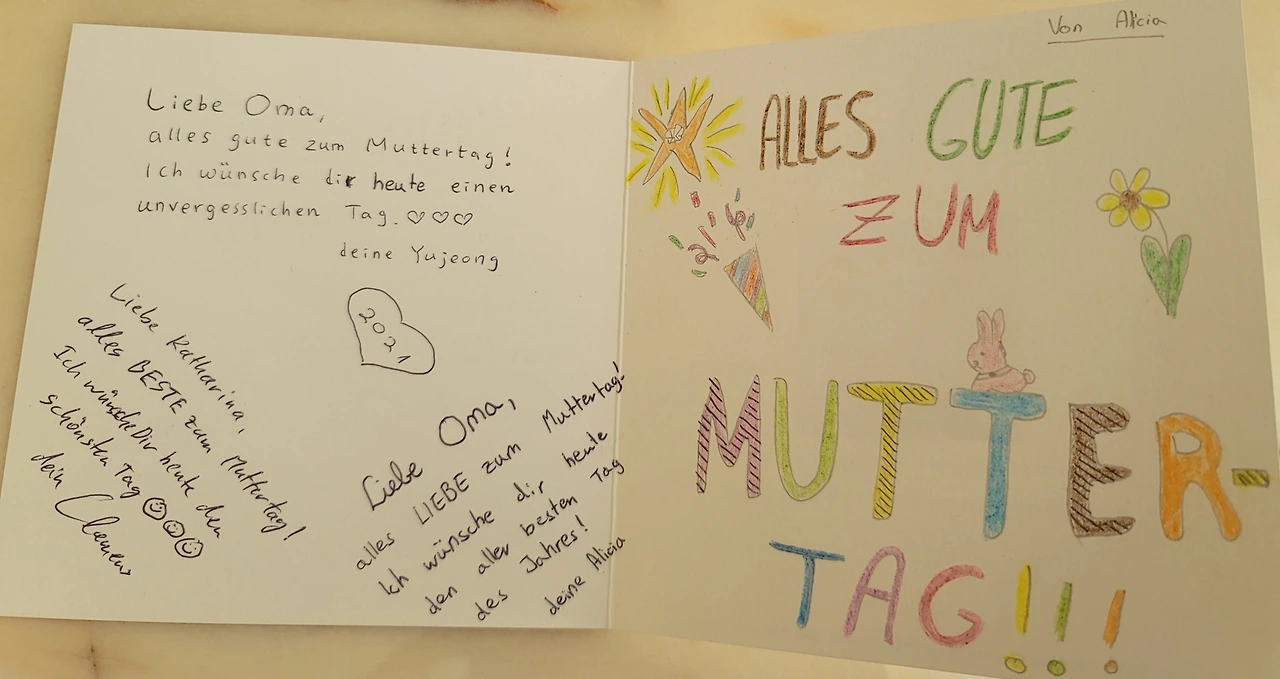 Liebe Oma,
alles gute zum Muttertag!
Ich wünsche dir heute einen
unvergesslichen Tag. ♡♡♡
deine Yujeong
2021
Liebe Katharina,
alles BESTE zum Muttertag!
Ich wünsche Dir heute den
schönsten Tag ☺☺☺
dein Clemens
Liebe Oma,
alles LIEBE zum Muttertag!
Ich wünsche dir heute
den aller besten Tag
des Jahres!
deine Alicia
Von Alicia
ALLES GUTE
ZUM
MUTTER-
TAG!!!